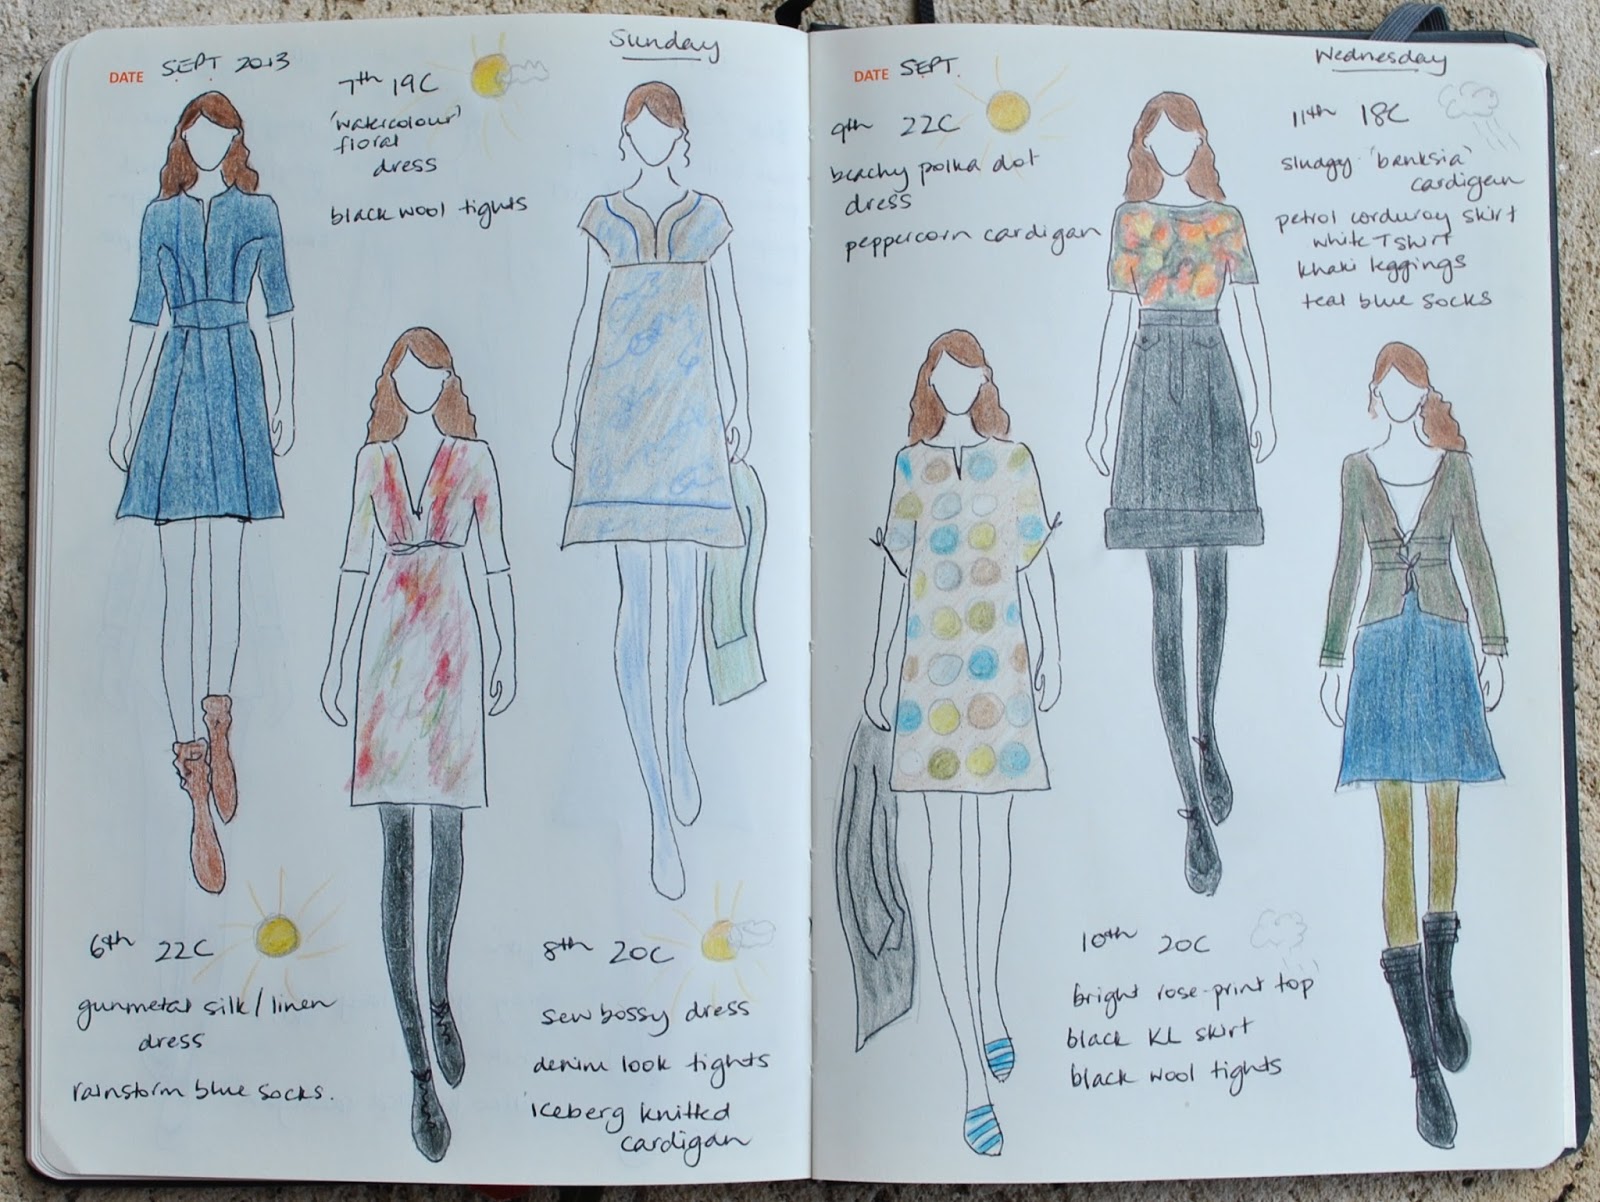 DATE SEPT 2013
Sunday
7th 19C
'watercolour'
floral
dress
black wool tights
6th 22C
gunmetal silk/linen
dress
rainstorm blue socks.
8th 20C
sew bossy dress
denim look tights
'iceberg knitted
cardigan
DATE SEPT.
Wednesday
9th 22C
beachy polka dot
dress
peppercorn cardigan
11th 18C
sludgy 'banksia'
cardigan
petrol corduroy skirt
white T shirt
khaki leggings
teal blue socks
10th 20C
bright rose-print top
black KL skirt
black wool tights